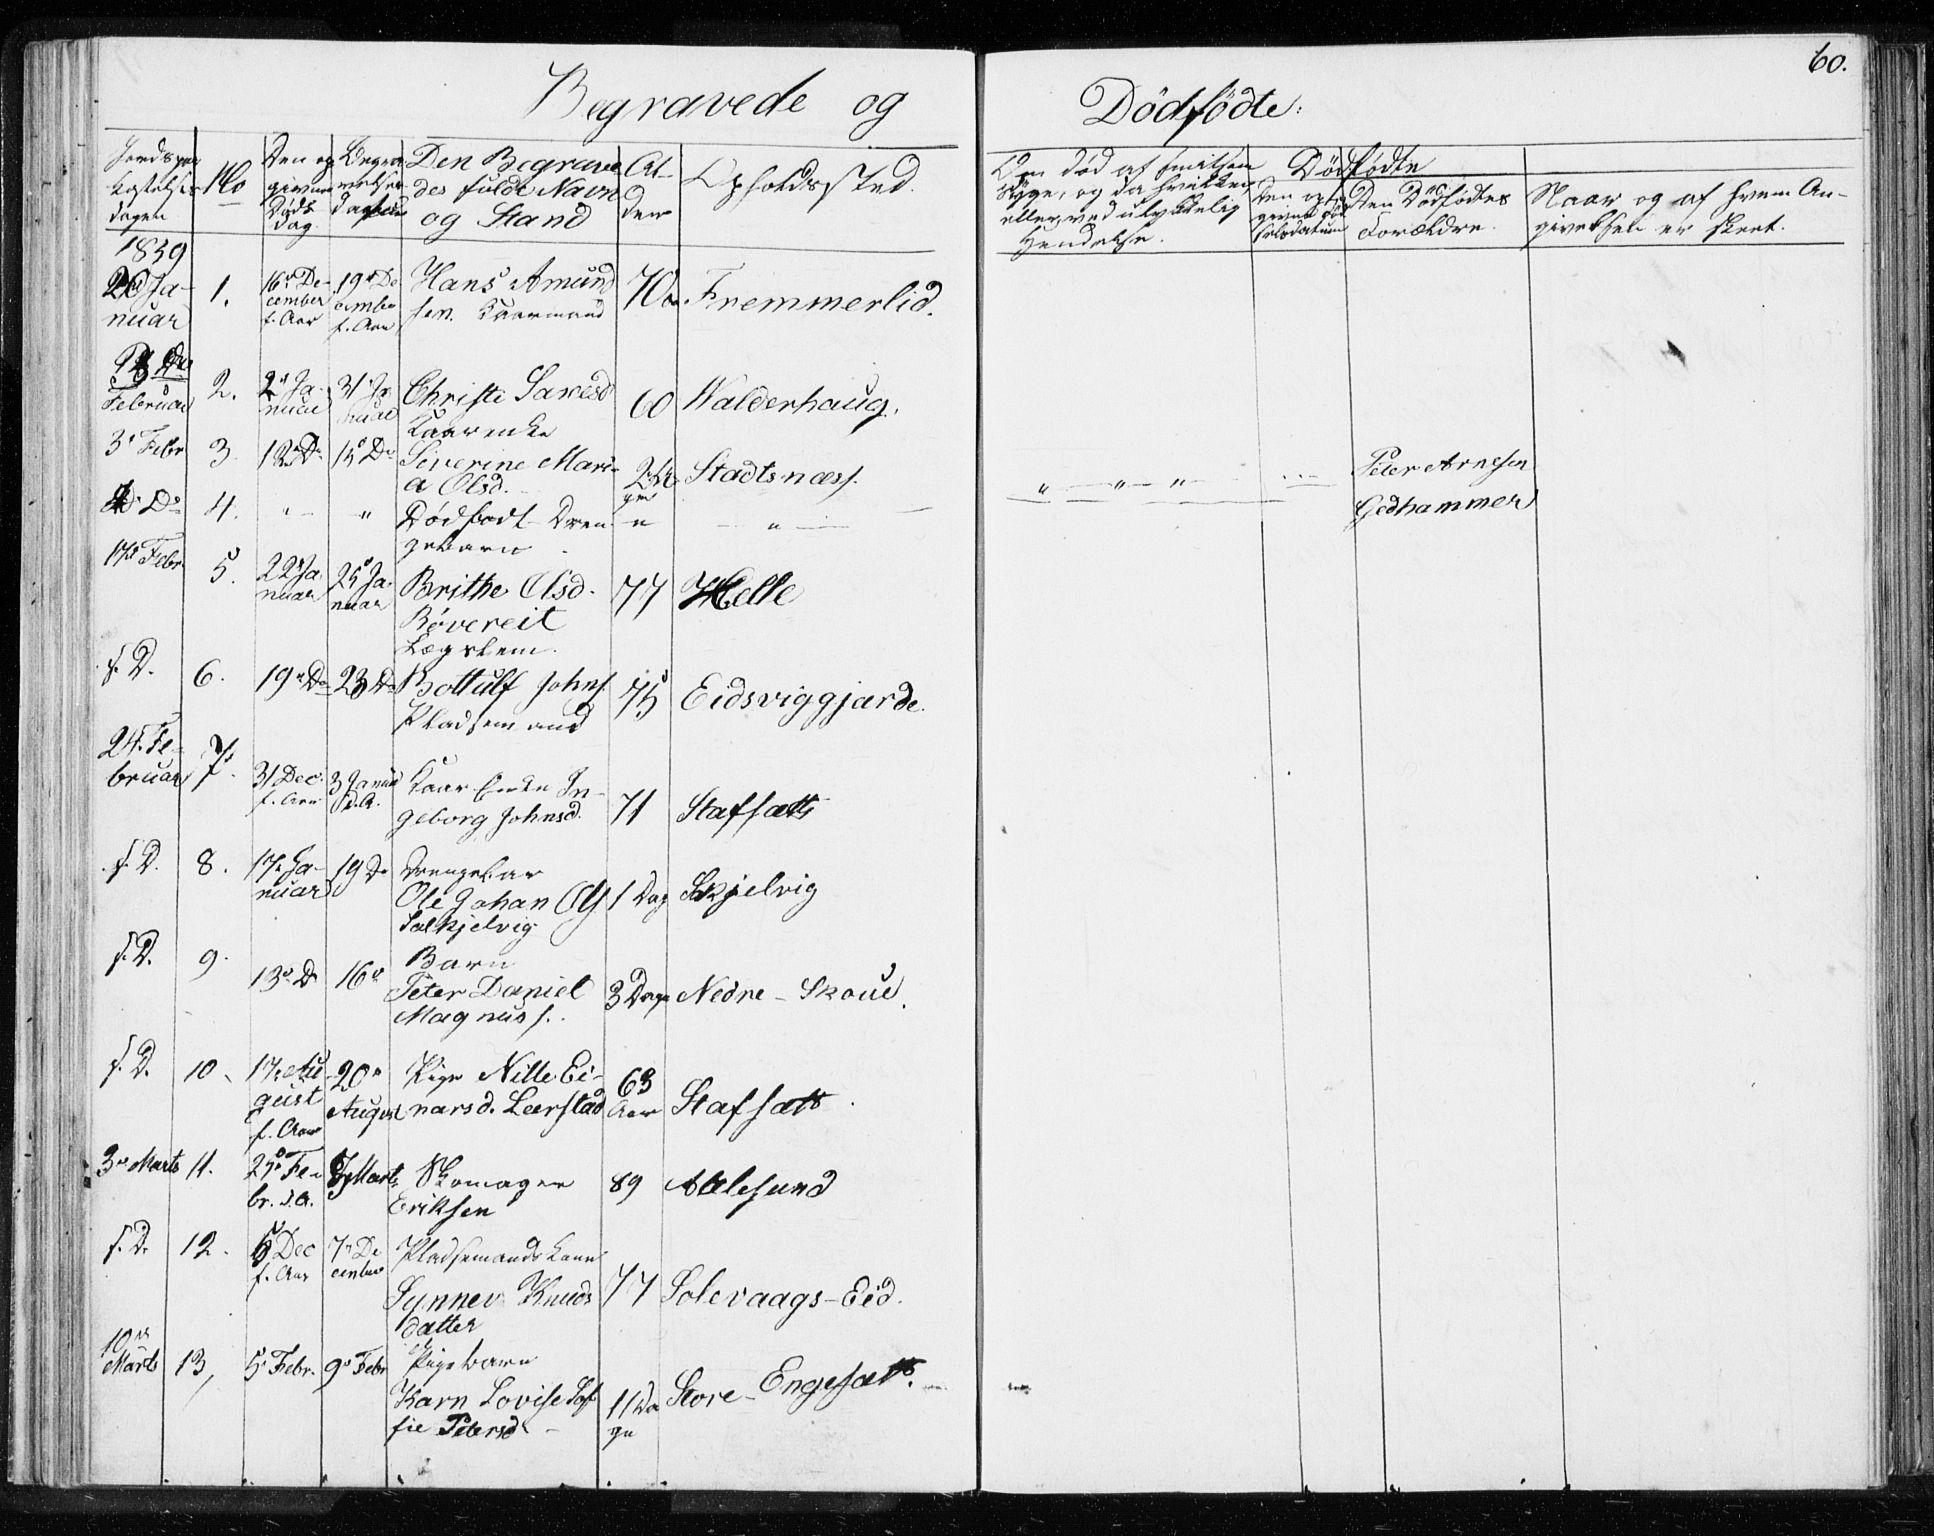 60.
Begravede og Dödfödte:
Jordspaa
kastelses
dagen
No
Den op
givne
Døds
dag
Begra
velses
dagen
Den Begrave
des fulde Navn
og Stand
Al-
der
Opholdssted.
Om död af smitsom
Syge, og da hvilken
eller ved ulykkelig
Hendelse.
Dödfödte
Den op-
givne Fød
selsdatum
Den Dödfödtes
Forældre.
Naar og af hvem An-
givelsen er skeet.
1839
20 Ja-
nuar
1.
16 De-
cember
f. Aar
19 De
cember
f. Aar
Hans Amund
sen. Kaarmand
70
Fremmerlid.
Februar
2.
2 Ja-
nuar
31 Ja
nuar
Christi Saresd
Kaarenke
60
Walderhaug.
3 Febr
3
12 D
15 D
Severine Mari-
a Olsd.
Stadtsnæss.
D
4.
"
"
Dödfödt Dren
gebarn
"
"
" " "
Peter Arnesen
Gedhammer
17 Febr.
5.
22 Ja
nuar
25 Ja-
nuar
Brithe Olsd.
Rövereit
Lægslem.
77
Helle
s. D.
6.
19 D
23 D
Bottulf Johns.
Pladsemand
75
Eidsviggjarde.
24 Fe-
bruar
7.
31 Dec.
f. Aar
3 Januar
d. A.
Kaar Enke In-
geborg Johnsd.
71
Stafsætt
s. D.
8.
17 Ja-
nuar
19 D
Drengebar
Ole Johan Ols
Solkjelvig
1 Dag
Skjelvig
s. D.
9.
13 D
16
Barn
Peter Daniel
Magnus s.
3 Dage
Nedre - Skoue.
s. D.
10.
17 Au
gust
f. Aar
20
August
Pige Nille Ei-
narsd. Leerstad
63
Aar
Stafsætt.
3 Marts
11.
25 Fe-
br. d. A.
Marts
Skomager
Eriksen
89
Aalesund
s. D.
12.
5 Dec
f. Aar
7 De
cember
Pladsemands Kone
Synnev Knuds
datter
77
Solevaags-Eid.
10
Marts
13,
5 Febr.
9 Febr
Pigebarn
Karn Lovise Sof
fie Petersd
11 Da
ge
Store - Engesæt.